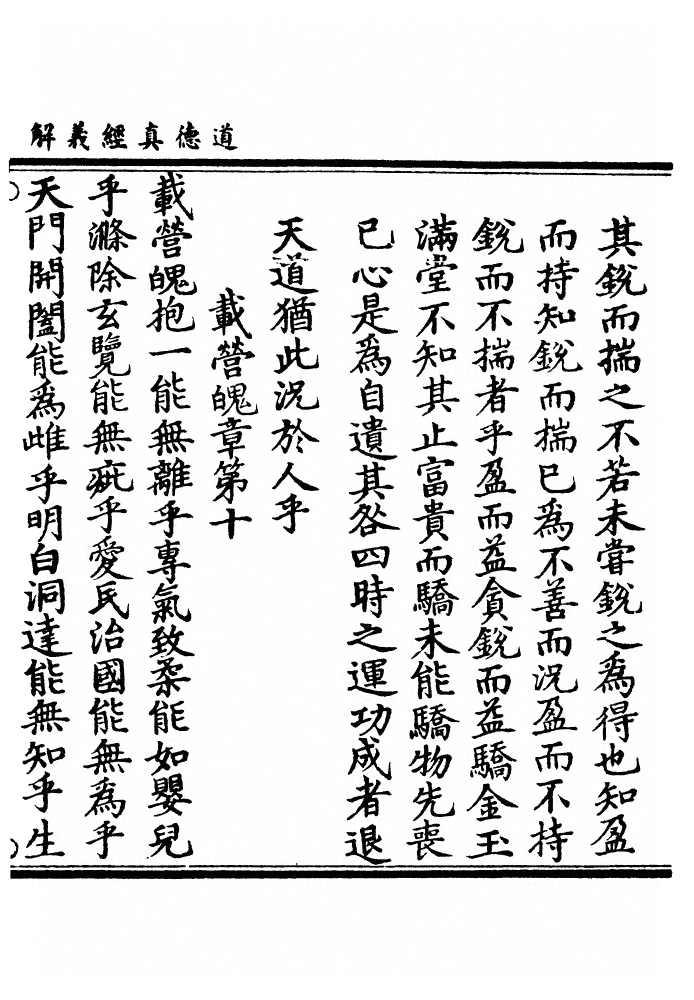 道德真經義解
其銳而揣之不若未嘗銳之為得也知盈
而持知銳而揣已為不善而況盈而不持
銳而不揣者乎盈而益貪銳而益驕金玉
滿堂不知其止富貴而驕未能驕物先喪
已心是為自遺其咎四時之運功成者退
天道猶此況於人乎
載營魄章第十
載營魄抱一能無離乎專氣致柔能如嬰兒
乎滌除玄覽能無疵乎愛民治國能無為乎
天門開闔能為雌乎明白洞達能無知乎生